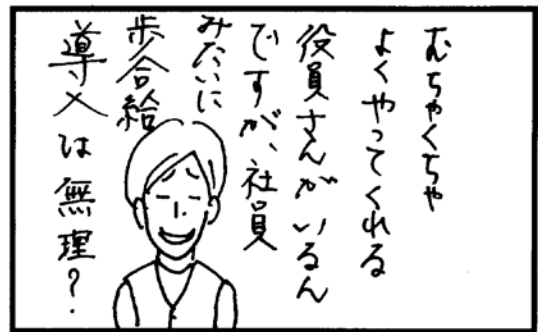 むちゃくちゃ
よくやってくれる
役員さんがいるん
ですが、社員
みたいに
歩合給
導入は無理?